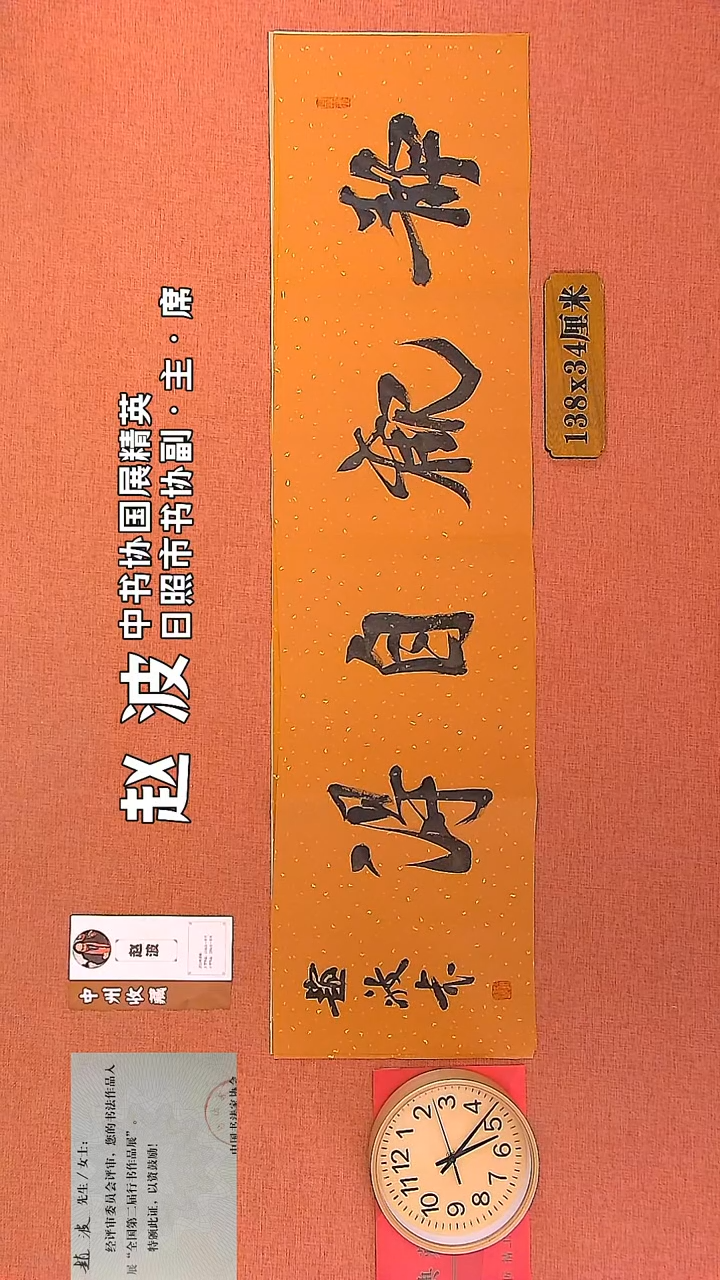 赵波
中书协国展精英
日照市书协副·主·席
中州收藏
赵波
赵波 先生/女士:
经评审委员会评审,您的书法作品入
展“全国第二届行书作品展”。
特颁此证,以资鼓励!
中国书法家协会
静觀自得
趙波书
138x34厘米
12
1
2
3
4
5
6
7
8
9
10
11